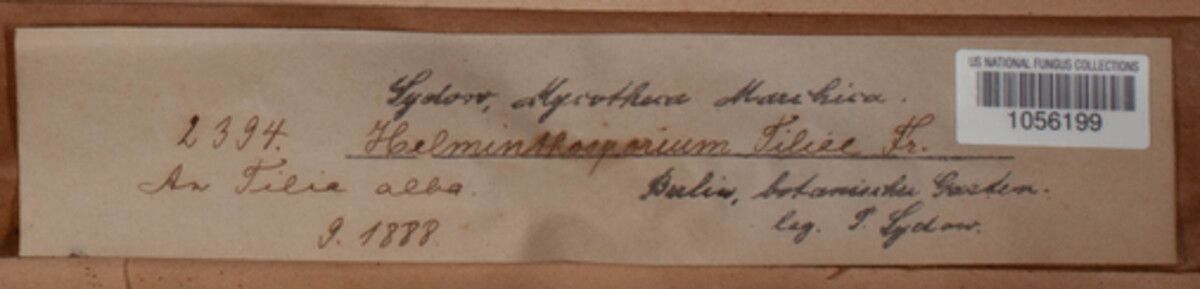 Sydow, Mycotheca Marchica.
2394. Helminthosporium Tiliae Fr.
An Tilia alba.
Berlin, botanischer Garten.
9. 1888.
leg. P. Sydow.
US NATIONAL FUNGUS COLLECTIONS
1056199